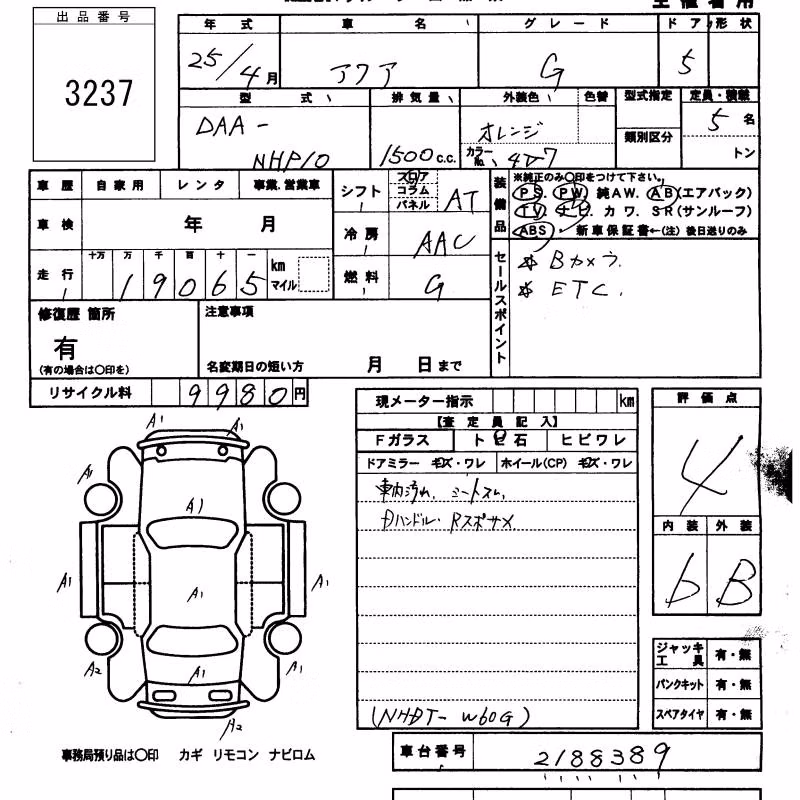 出品番号
3237
年式 車名 グレード ドア 形状
25/4月 アクア G 5
型式 排気量 外装色 色替 型式指定 定員・積載
DAA-
NHP10 1500c.c. オレンジ 類別区分 5名
カラーNo. 4V7 トン
車歴 自家用 レンタ 事業.営業車
車検 年 月
走行 十万 万 千 百 十 一
19065 km マイル
シフト フロア コラム パネル AT
冷房 AAC
燃料 G
装備品 ※純正のみ〇印をつけて下さい。
PS. PW. 純AW. AB(エアバック)
TV. ナビ. カワ. SR(サンルーフ)
ABS. 新車保証書←(注) 後日送りのみ
セールスポイント
☆ Bカメラ.
☆ ETC.
修復歴 箇所
有
(有の場合は〇印を)
注意事項
名変期日の短い方 月 日まで
リサイクル料 9980円
現メーター指示 km
【査定員記入】
Fガラス トビ石 ヒビワレ
ドアミラー キズ・ワレ ホイール(CP) キズ・ワレ
車内汚れ. シートスレ.
Dハンドル. Rスポサメ
(NHDT-W60G)
評価点
4
内装 外装
b B
ジャッキ工具 有・無
パンクキット 有・無
スペアタイヤ 有・無
A1 A1
A1
A1
A1 A1 A1
A2 A1 A1
A2
事務局預り品は〇印 カギ リモコン ナビロム
車台番号 2188389